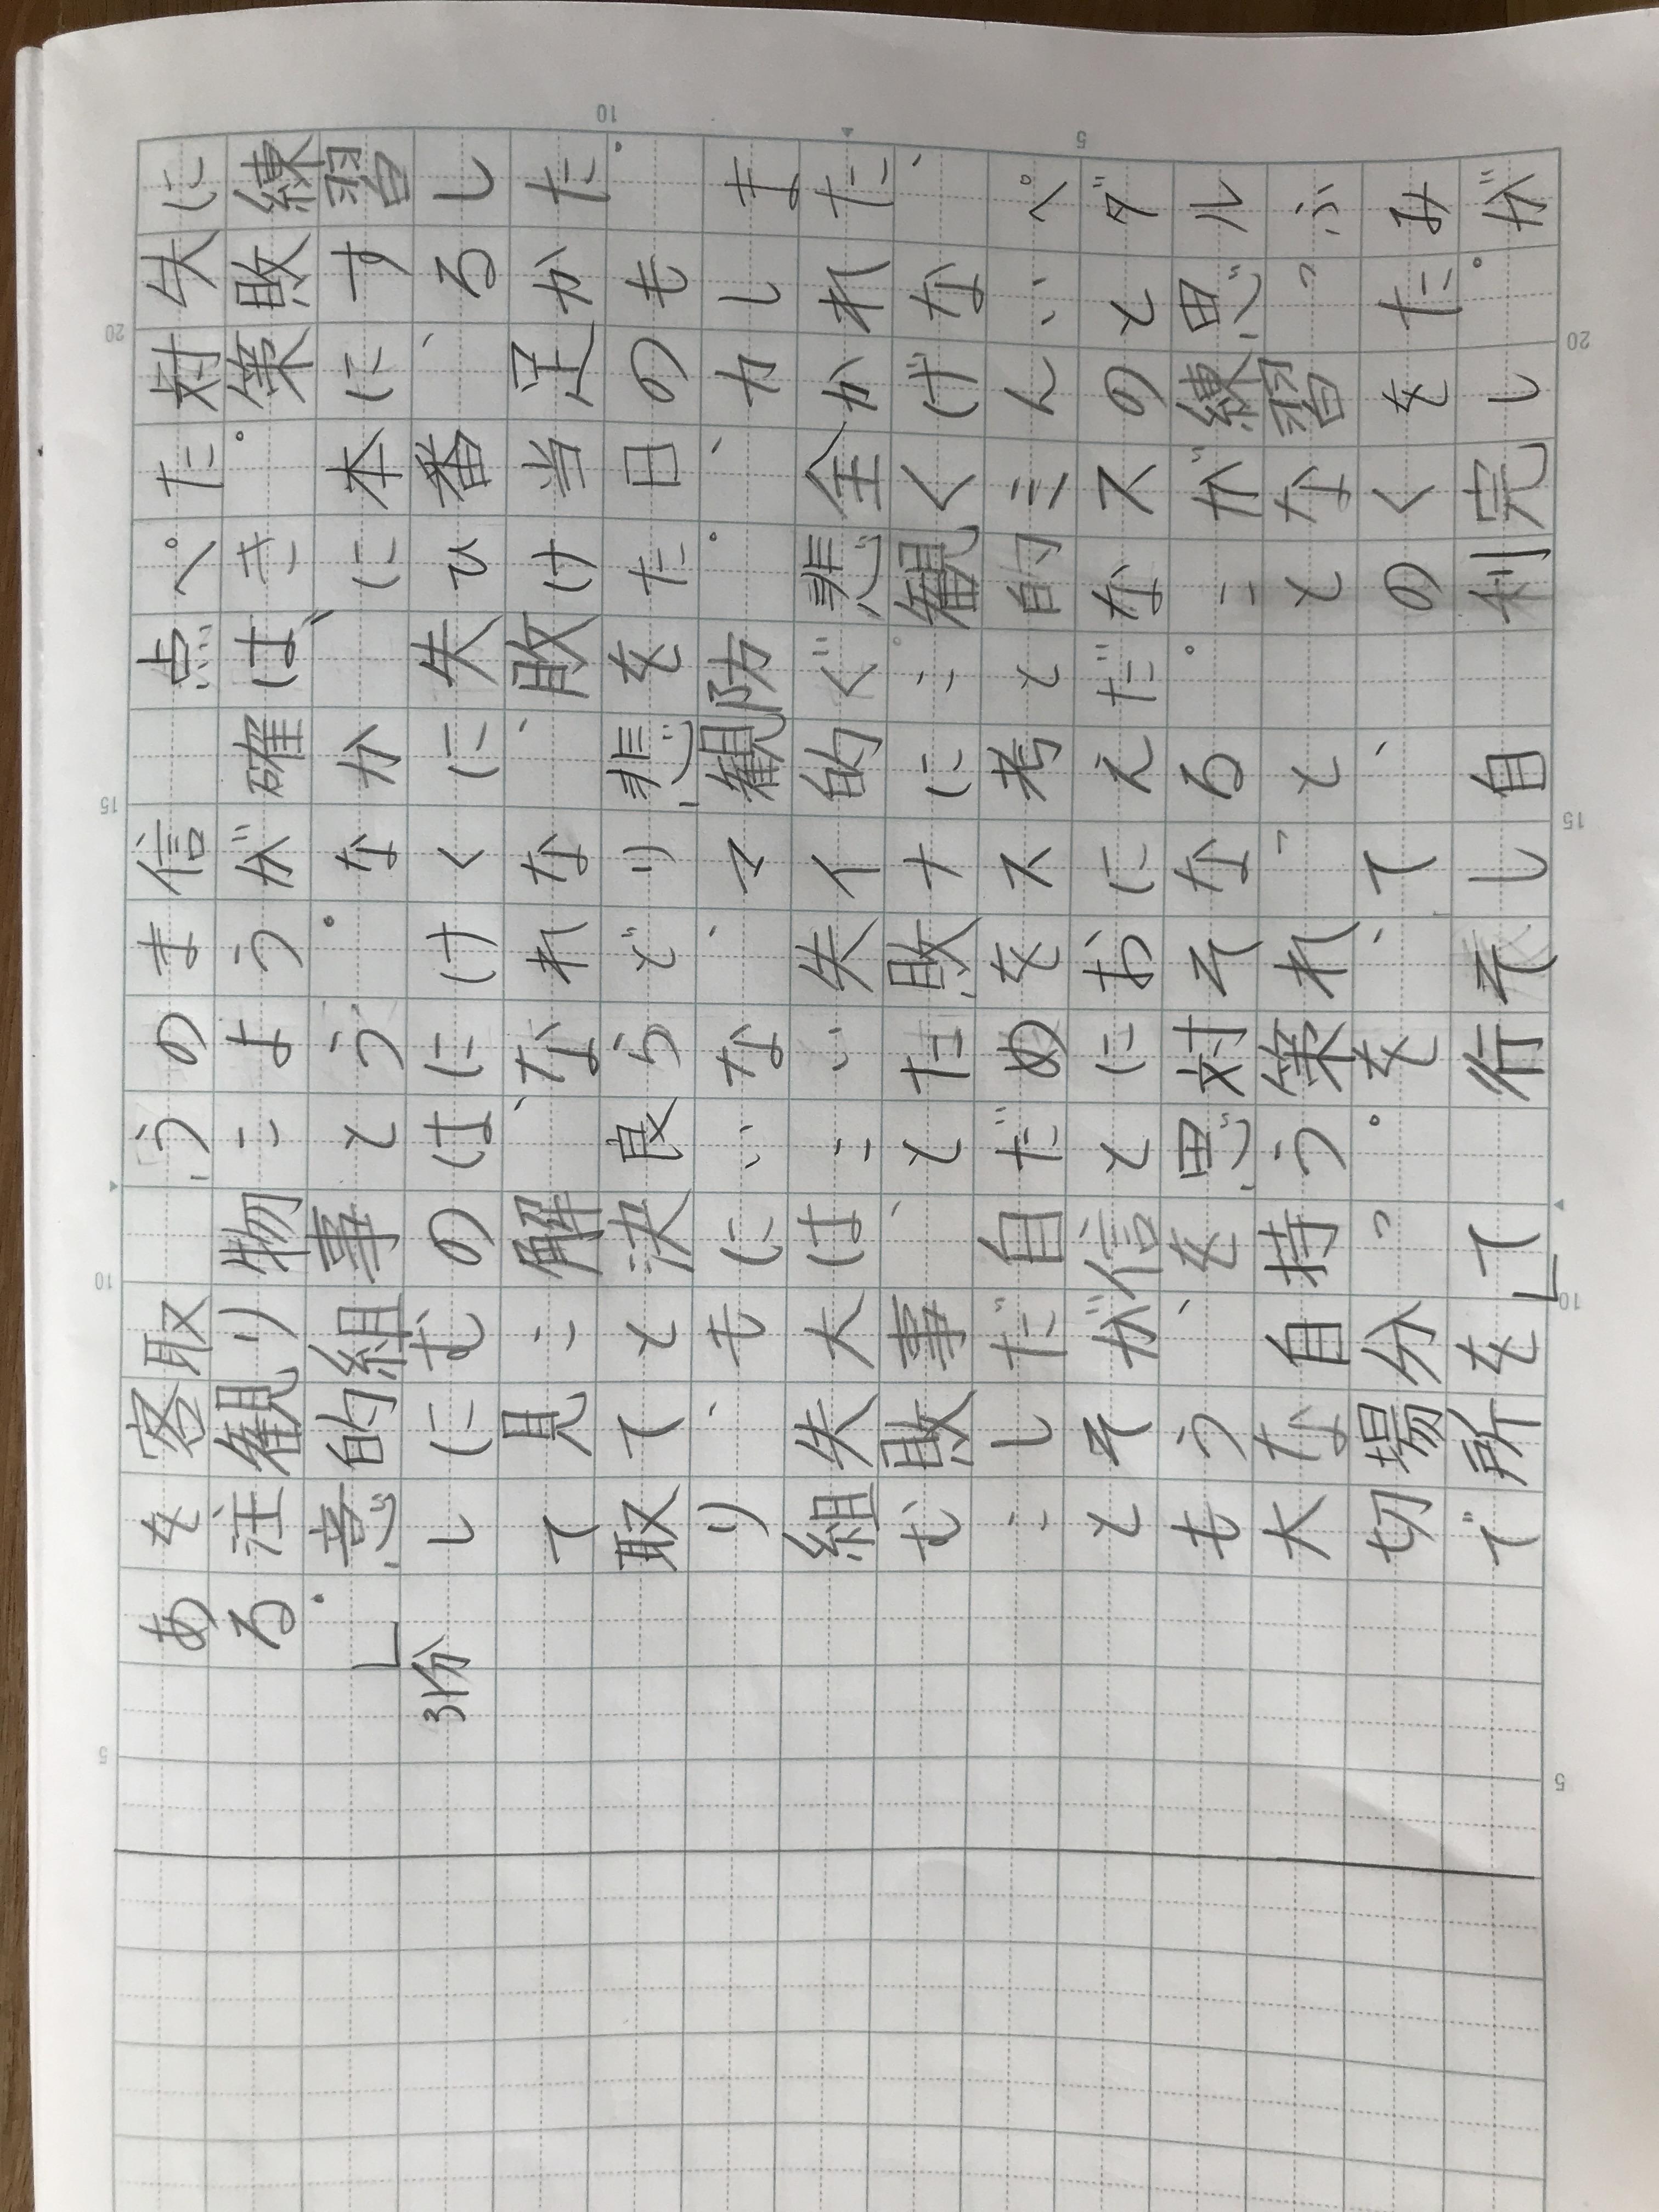 に練習した。また、ペダルふみが
失敗するかもしれないと思った。
対策に、足の力かげんの練習をし
た。本番当日、全くミスがなく完
ぺきにひけた。悲観的なことの利
点は、失敗を防ぐことだ。
確かに、悲観的に考えると、自
信がなくなりマイナスになってし
まう。けれど、失敗をおそれ、そ
のようにならないために対策を行
うことは、良いことだと思う。
物事の解決には、自信を持って
取り組むことも大事だが、自分を
客観的に見て、失敗しそうな場所
を注意して取り組むことも大切で
ある。」
3份
10
5
20
20
15
15
10
10
5
5